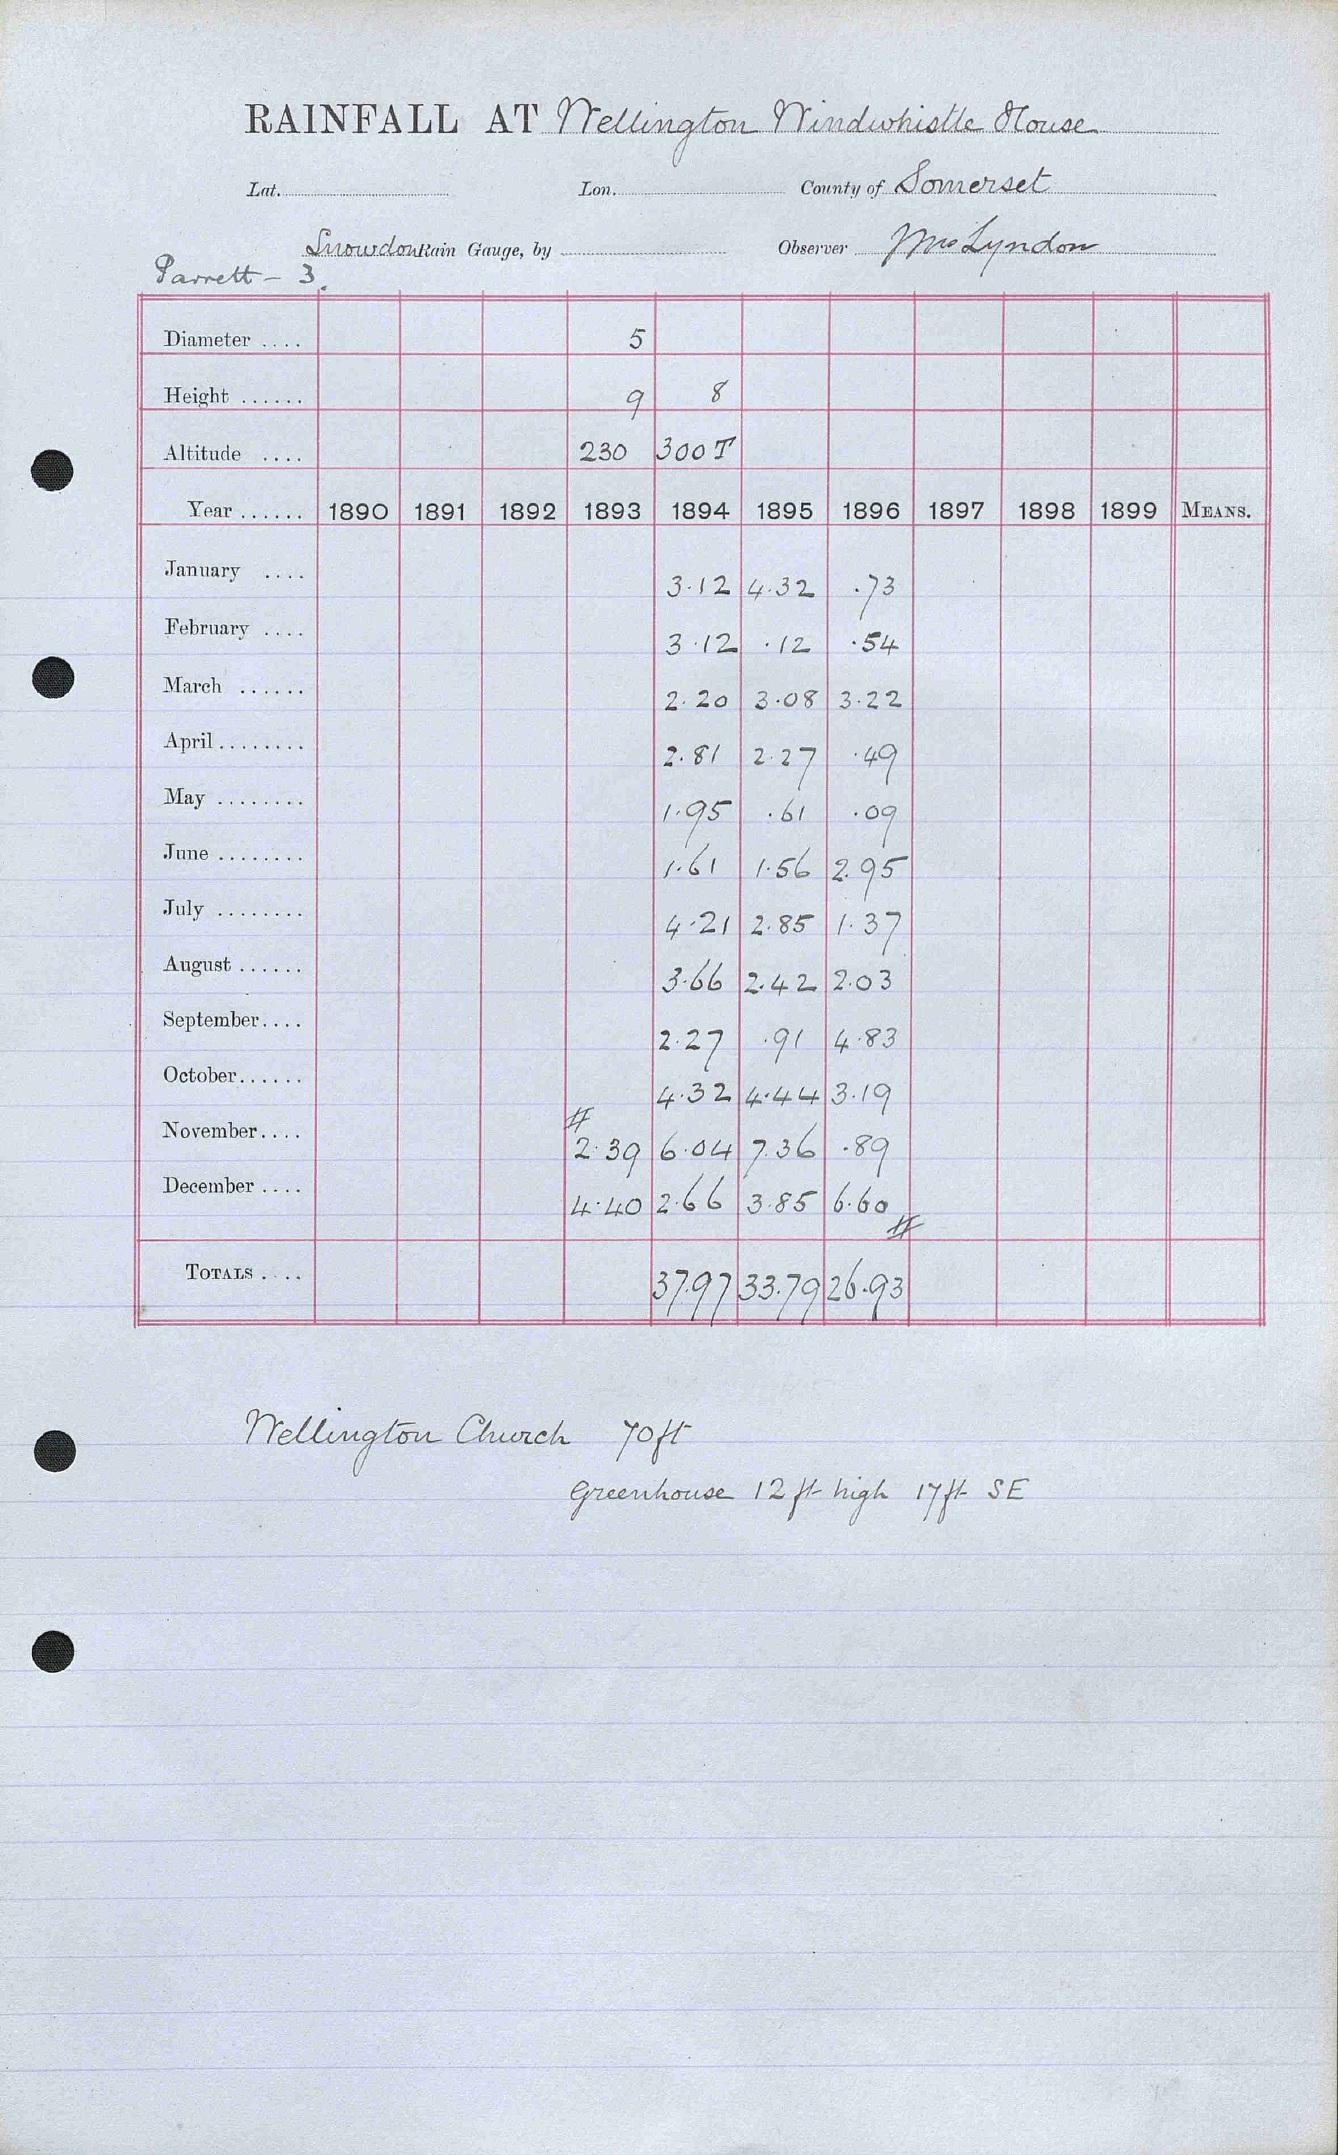 RAINFALL AT Wellington Windwhistle House
Lat. Lon. County of Somerset
Snowdon Rain Gauge, by Observer Mrs Lyndon
Parrett - 3.
Diameter .... 5
Height ...... 9 8
Altitude .... 230 300 T
Year ...... 1890 1891 1892 1893 1894 1895 1896 1897 1898 1899 MEANS.
January .... 3.12 4.32 .73
February .... 3.12 .12 .54
March ...... 2.20 3.08 3.22
April ........ 2.81 2.27 .49
May ........ 1.95 .61 .09
June ........ 1.61 1.56 2.95
July ........ 4.21 2.85 1.37
August ...... 3.66 2.42 2.03
September .... 2.27 .91 4.83
October ...... 4.32 4.44 3.19
November .... 2.39 6.04 7.36 .89
December .... 4.40 2.66 3.85 6.60
TOTALS .... 37.97 33.79 26.93
Wellington Church 70 ft
Greenhouse 12 ft high 17 ft SE